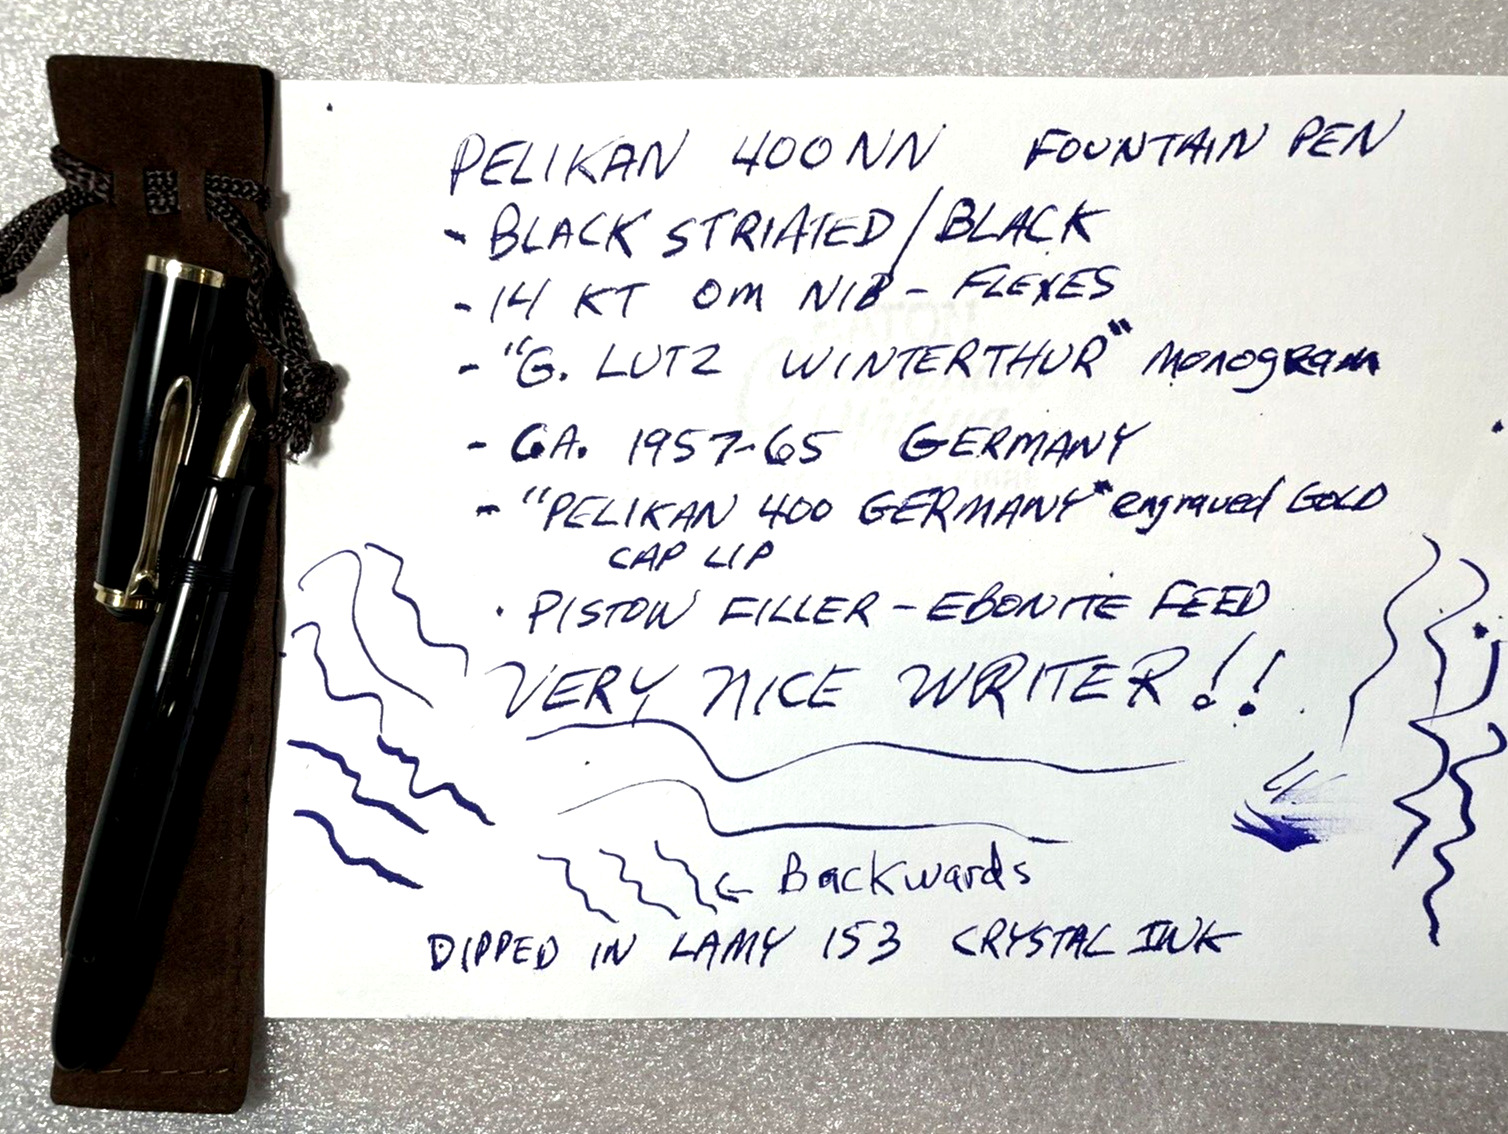 PELIKAN 400NN FOUNTAIN PEN
- BLACK STRIATED/BLACK
- 14 KT OM NIB - FLEXES
- "G. LUTZ WINTERTHUR" MONOGRAM
- CA. 1957-65 GERMANY
- "PELIKAN 400 GERMANY" engraved GOLD
CAP LIP
· PISTON FILLER - EBONITE FEED
VERY NICE WRITER!!
← Backwards
DIPPED IN LAMY 153 CRYSTAL INK